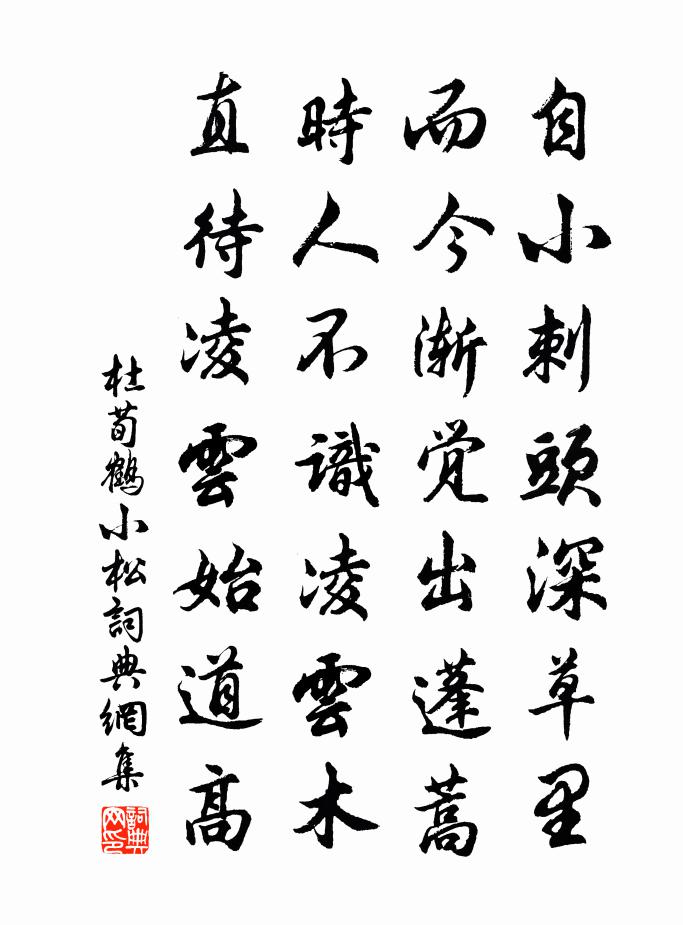 自小刺頭深草里
而今漸覚出蓬蒿
時人不識凌雲木
直待凌雲始道高
杜荀鶴小松詞典網集
詞典网印